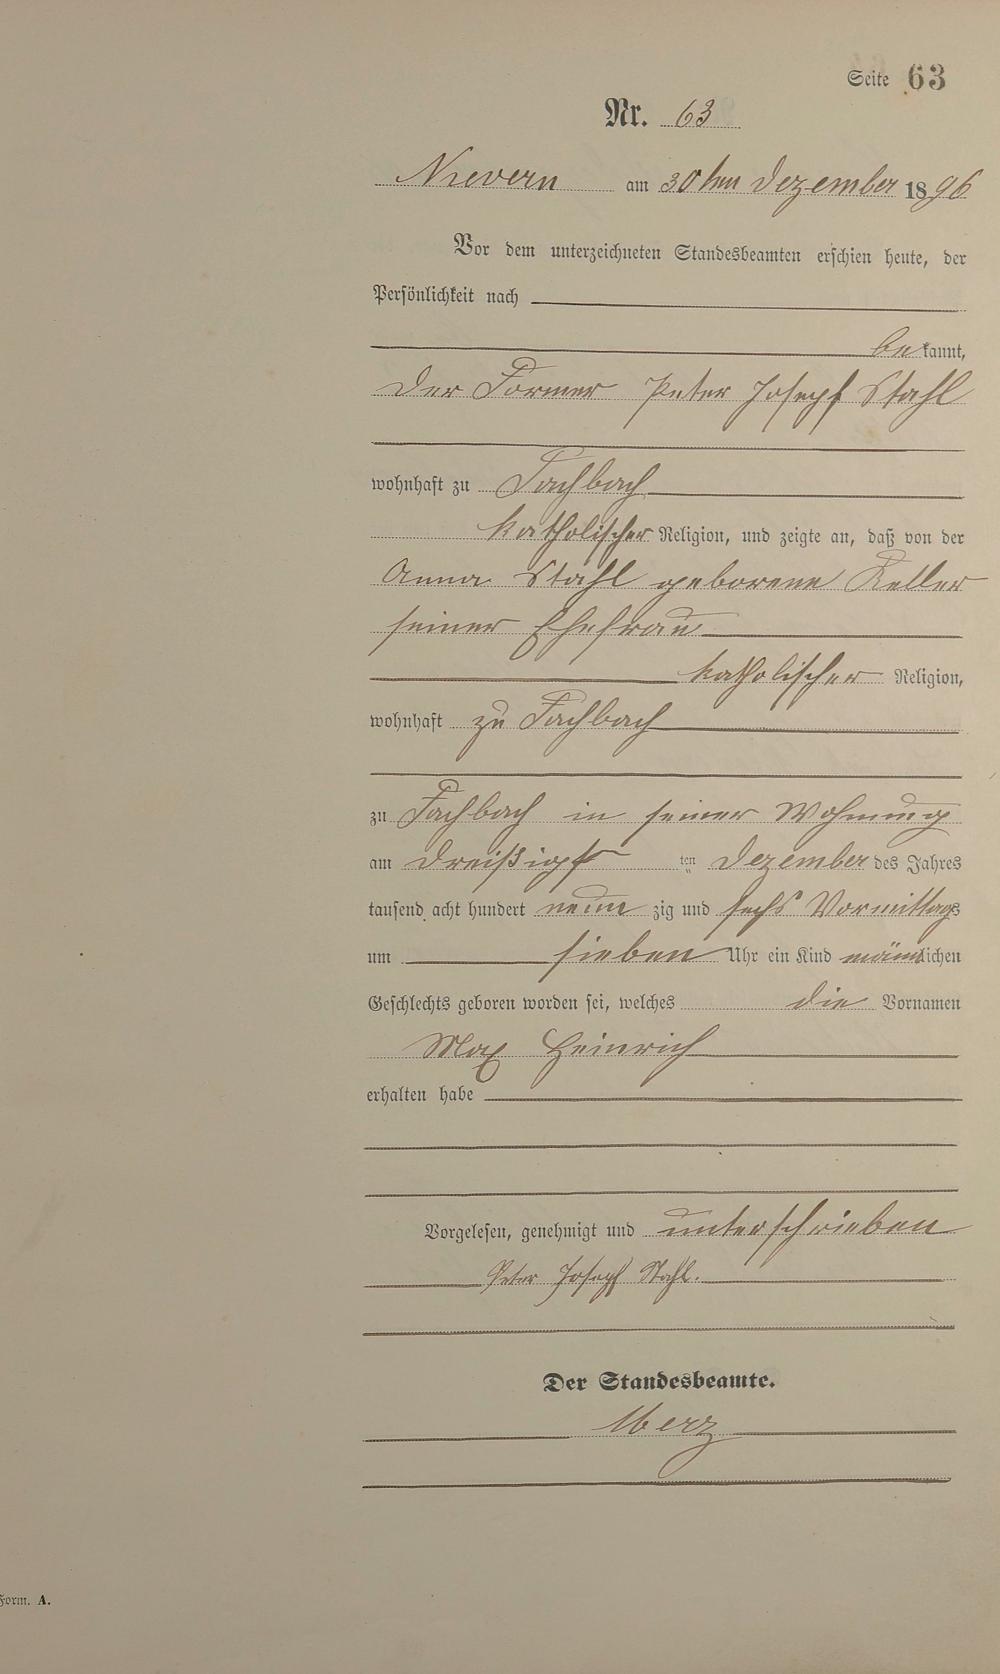 Seite 63
Nr. 63
Nievern am 30ten Dezember 1896
Vor dem unterzeichneten Standesbeamten erschien heute, der
Persönlichkeit nach
bekannt,
der Former Peter Joseph Stahl
wohnhaft zu Fachbach
katholischer Religion, und zeigte an, daß von der
Anna Stahl geborene Keller
seiner Ehefrau
katholischer Religion,
wohnhaft zu Fachbach
zu Fachbach in seiner Wohnung
am dreißigsten Dezember des Jahres
tausend acht hundert neunzig und sechs Vormittags
um sieben Uhr ein Kind männlichen
Geschlechts geboren worden sei, welches die Vornamen
Max Heinrich
erhalten habe
Vorgelesen, genehmigt und unterschrieben
Peter Joseph Stahl.
Der Standesbeamte.
Merz
Form. A.